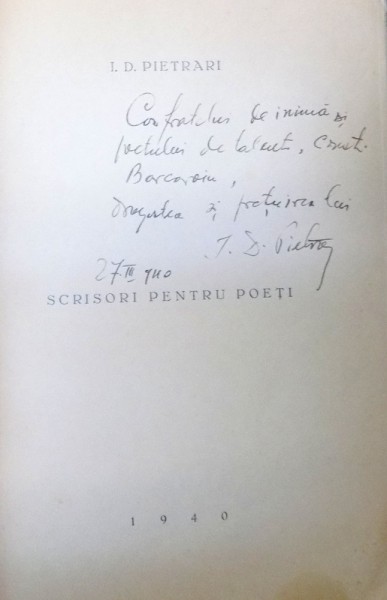 I. D. PIETRARI
Confratelui de inimă și
poetului de talent,
Barcaroiu,
dragostea și prețuirea lui
I. D. Pietrari
27 III 940
SCRISORI PENTRU POEȚI
1940